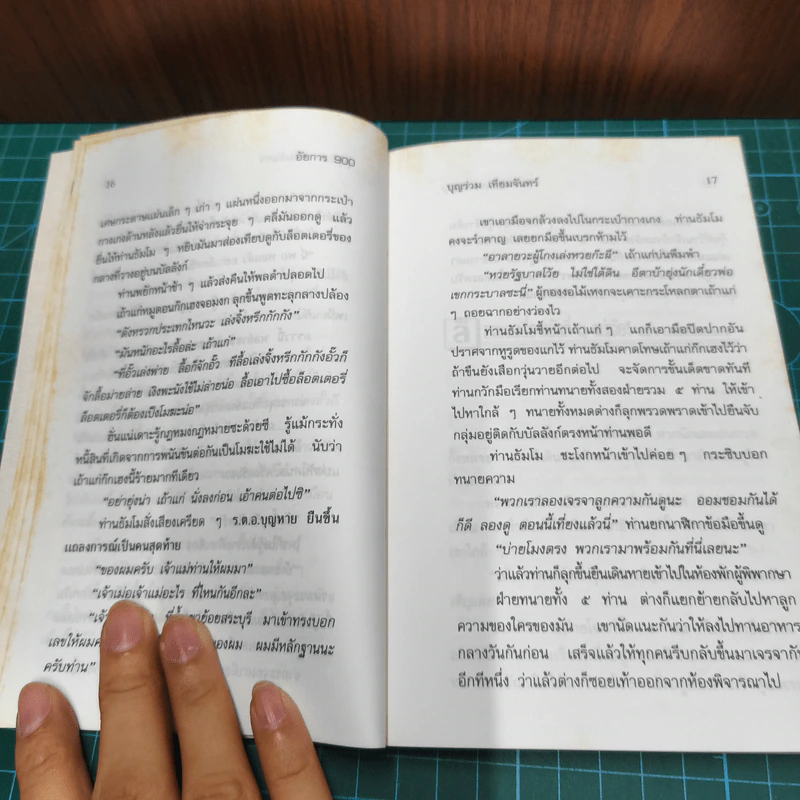 16
อัยการ 900
เศษกระดาษแผ่นเล็ก ๆ เก่า ๆ แผ่นหนึ่งออกมาจากกระเป๋า
กางเกงด้านหลังแล้วยื่นให้จ่ากระจุย ๆ คลี่มันออกดู แล้ว
ยื่นให้ท่านธัมโม ๆ หยิบมันมาส่องเทียบดูกับล็อตเตอรี่ของ
กลางที่วางอยู่บนบัลลังก์
ท่านพยักหน้าช้า ๆ แล้วส่งคืนให้พลตำปลอดไป
เถ้าแก่หมูตอนก๊กเฮงจอมงก ลุกขึ้นพูดทะลุกลางปล้อง
“ดังทรวกประเทกไหนวะ เล่งจิ้งหรีกกักกัง”
“มันหนักอะไรลื้อล่ะ เถ้าแก่”
“ที่อั๊วเล่งพ่าย ลื้อก็จักอั๊ว ทีลื้อเล่งจิ้งหรีกกักกังอั๊วก็
จักลื้อม่ายล่าย เงิงพะนังใช้ไม่ล่ายน่อ ลื้อเอาไปซื้อล็อตเตอรี่
ล็อตเตอรี่ก็ต้องเป็งโมฆะน่อ”
ฮั่นแน่เดาะรู้กฎหมงกฎหมายซะด้วยซี รู้แม้กระทั่ง
หนี้สินที่เกิดจากการพนันขันต่อกันเป็นโมฆะใช้ไม่ได้ นับว่า
เถ้าแก่ก๊กเฮงนี้ร้ายมากทีเดียว
“อย่ายุ่งน่า เถ้าแก่ นั่งลงก่อน เอ้าคนต่อไปซิ”
ท่านธัมโมสั่งเสียงเครียด ๆ ร.ต.อ.บุญหาย ยืนขึ้น
แถลงการณ์เป็นคนสุดท้าย
“ของผมครับ เจ้าแม่ท่านให้ผมมา”
“เจ้าเม่อเจ้าแม่อะไร ที่ไหนกันอีกละ”
“เจ้า ย้อยสระบุรี มาเข้าทรงบอก
เลขให้ผมค ของผม ผมมีหลักฐานนะ
ครับท่าน”
บุญร่วม เทียมจันทร์
17
เขาเอามือจกล้วงลงไปในกระเป๋ากางเกง ท่านธัมโม
คงจะรำคาญ เลยยกมือขึ้นเบรกห้ามไว้
“อาลายวะผู้โกงเล่งหวยก๊ะมี” เถ้าแก่บ่นพึมพำ
“หวยรัฐบาลโว้ย ไม่ใช่ใต้ดิน อีตาบ้ายุ่งนักเดี๋ยวพ่อ
เขกกระบาลซะนี่” ผู้กองงอไม้เหงกจะเคาะกระโหลกตาเถ้าแก่
ๆ ถอยฉากอย่างว่องไว
ท่านธัมโมชี้หน้าเถ้าแก่ ๆ แกก็เอามือปิดปากอัน
ปราศจากหูรูดของแกไว้ ท่านธัมโมคาดโทษเถ้าแก่ก๊กเฮงไว้ว่า
ถ้าขืนยังเสือกวุ่นวายอีกต่อไป จะจัดการขั้นเด็ดขาดทันที
ท่านกวักมือเรียกท่านทนายทั้งสองฝ่ายรวม ๕ ท่าน ให้เข้า
ไปหาใกล้ ๆ ทนายทั้งหมดต่างก็ลุกพรวดพราดเข้าไปยืนจับ
กลุ่มอยู่ติดกับบัลลังก์ตรงหน้าท่านพอดี
ท่านธัมโม ชะโงกหน้าเข้าไปค่อย ๆ กระซิบบอก
ทนายความ
“พวกเราลองเจรจาลูกความกันดูนะ ออมชอมกันได้
ก็ดี ลองดู ตอนนี้เที่ยงแล้วนี่” ท่านยกนาฬิกาข้อมือขึ้นดู
“บ่ายโมงตรง พวกเรามาพร้อมกันที่นี่เลยนะ”
ว่าแล้วท่านก็ลุกขึ้นยืนเดินหายเข้าไปในห้องพักผู้พิพากษา
ฝ่ายทนายทั้ง ๕ ท่าน ต่างก็แยกย้ายกลับไปหาลูก
ความของใครของมัน เขานัดแนะกันว่าให้ลงไปทานอาหาร
กลางวันกันก่อน เสร็จแล้วให้ทุกคนรีบกลับขึ้นมาเจรจากัน
อีกทีหนึ่ง ว่าแล้วต่างก็ซอยเท้าออกจากห้องพิจารณาไป